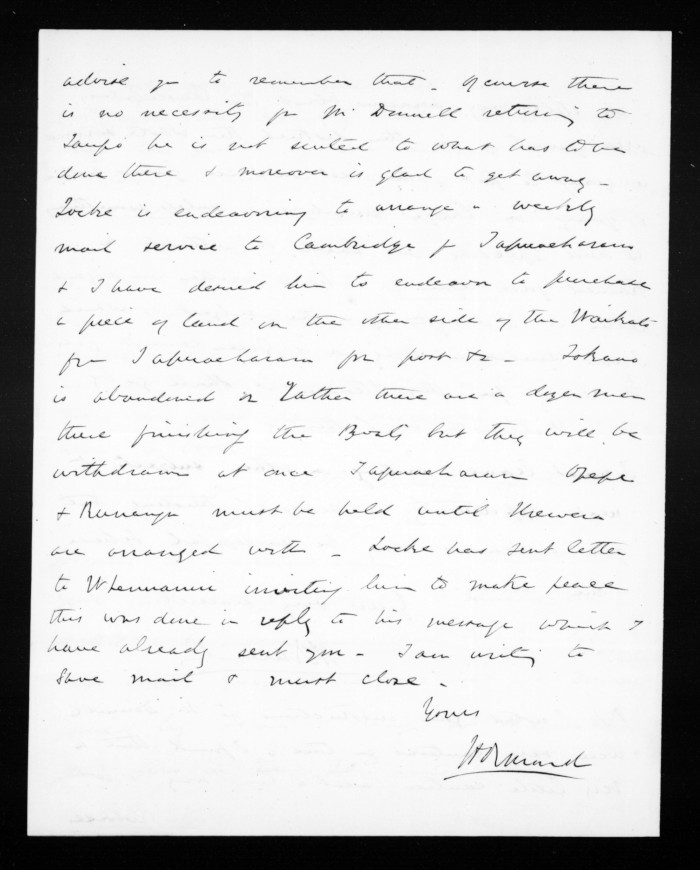 advise you to remember that - Of course there
is no necessity for McDonnell returning to
Taupo he is not suited to what has to be
done there & moreover is glad to get away -
Locke is endeavoring to arrange a weekly
mail service to Cambridge fr Tapuaeharuru
& I have desired him to endeavor to purchase
a piece of land on the other side of the Waikato
from Tapuaeharuru for post &c - Tokano
is abandoned or rather there are a dozen men
there finishing the Boats but they will be
withdrawn at once Tapuaeharuru Opepe
& Runanga must be held until Urewera
are arranged with - Locke has sent letter
to inviting him to make peace
this was done in reply to his message which I
have already sent you - I am writing to
save mail & must close -
Yours